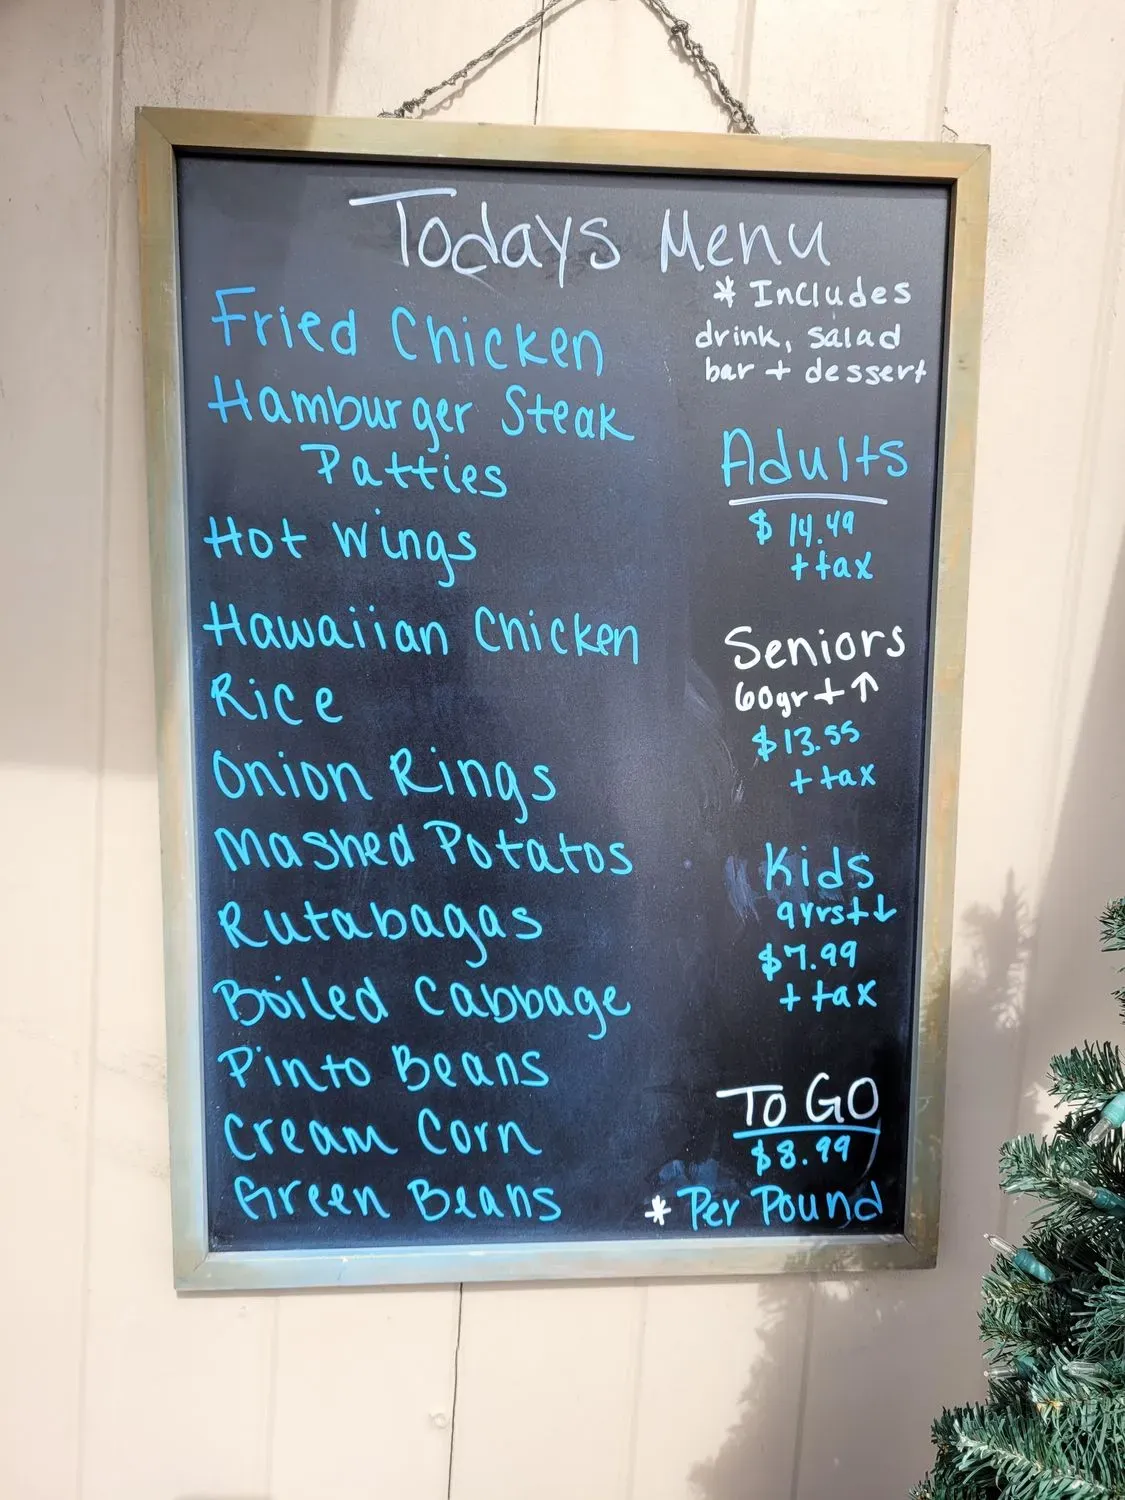 Todays Menu
* Includes
drink, salad
bar + dessert
Fried Chicken
Hamburger Steak
Patties
Hot Wings
Hawaiian Chicken
Rice
Onion Rings
Mashed Potatos
Rutabagas
Boiled Cabbage
Pinto Beans
Cream Corn
Green Beans
Adults
$14.49
+ tax
Seniors
60yr + ↑
$13.55
+ tax
Kids
9yrs + ↓
$7.99
+ tax
To GO
$8.99
* Per Pound